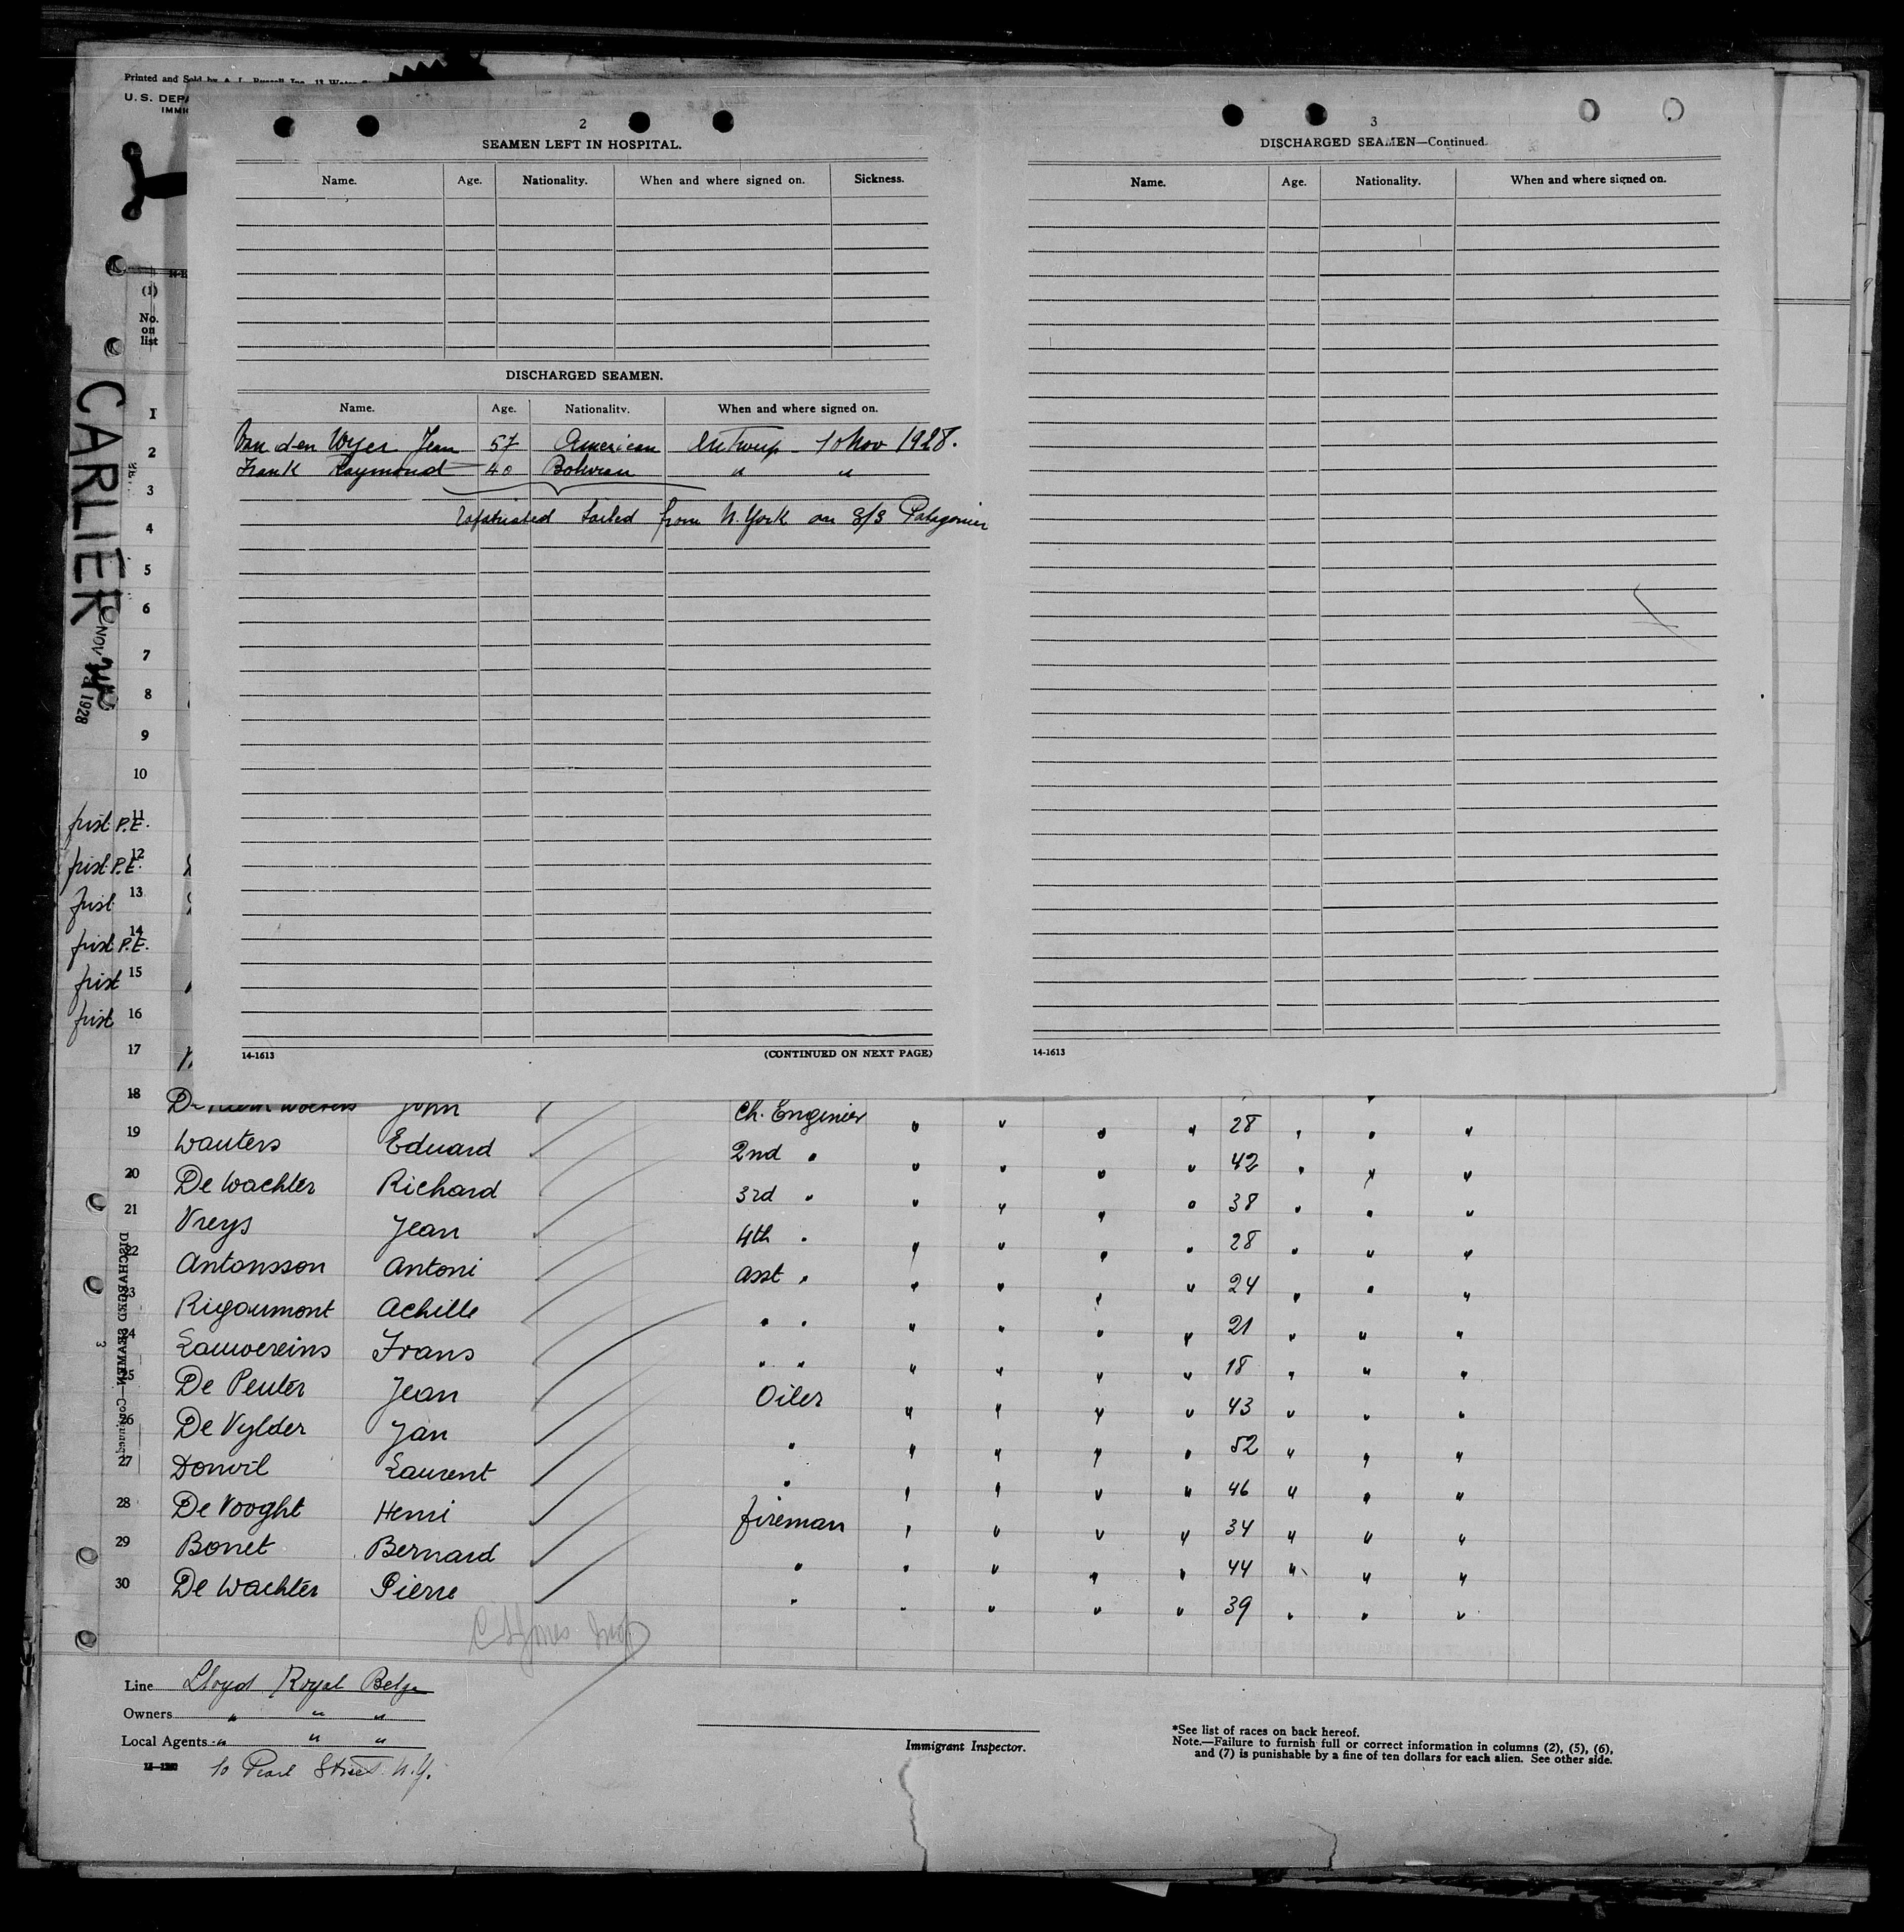 Printed and Sold by A. L. Russell Inc. 13 Water
U. S. DEPA
IMMIG
(1)
No.
on
list
CARLIER
NOV
1928
2
SEAMEN LEFT IN HOSPITAL.
Name. Age. Nationality. When and where signed on. Sickness.
DISCHARGED SEAMEN.
Name. Age. Nationality. When and where signed on.
Van den Wyer Jean 57 American Antwerp - 10 Nov 1928.
Frank Raymond 40 Bolivian " "
sailed from N. York on S/S Patagonier
14-1613 (CONTINUED ON NEXT PAGE)
3
DISCHARGED SEAMEN—Continued.
Name. Age. Nationality. When and where signed on.
14-1613
1
2
3
4
5
6
7
8
9
10
first P.E. 11
first P.E. 12
first 13
first P.E. 14
first 15
first 16
17
18 John Ch. Enginier " " " " 28 " " "
19 Wauters Eduard 2nd " " " " " 42 " " "
20 De Wachter Richard 3rd " " " " " 38 " " "
21 Vreys Jean 4th " " " " " 28 " " "
22 Antonsson Antoni asst " " " " " 24 " " "
23 Rigaumont Achille " " " " " " 21 " " "
24 Lauwereins Frans " " " " " " 18 " " "
25 De Peuter Jean Oiler " " " " 43 " " "
26 De Vylder Jan " " " " " 52 " " "
27 Donvil Laurent " " " " " 46 " " "
28 De Vooght Henri fireman " " " " 34 " " "
29 Bonet Bernard " " " " " 44 " " "
30 De Wachter Pierre " " " " " 39 " " "
3
DISCHARGED SEAMEN—Continued
Line Lloyd Royal Belge
Owners " " "
Local Agents " " "
10 Pearl Street N.Y.
Immigrant Inspector.
*See list of races on back hereof.
Note.—Failure to furnish full or correct information in columns (2), (5), (6),
and (7) is punishable by a fine of ten dollars for each alien. See other side.